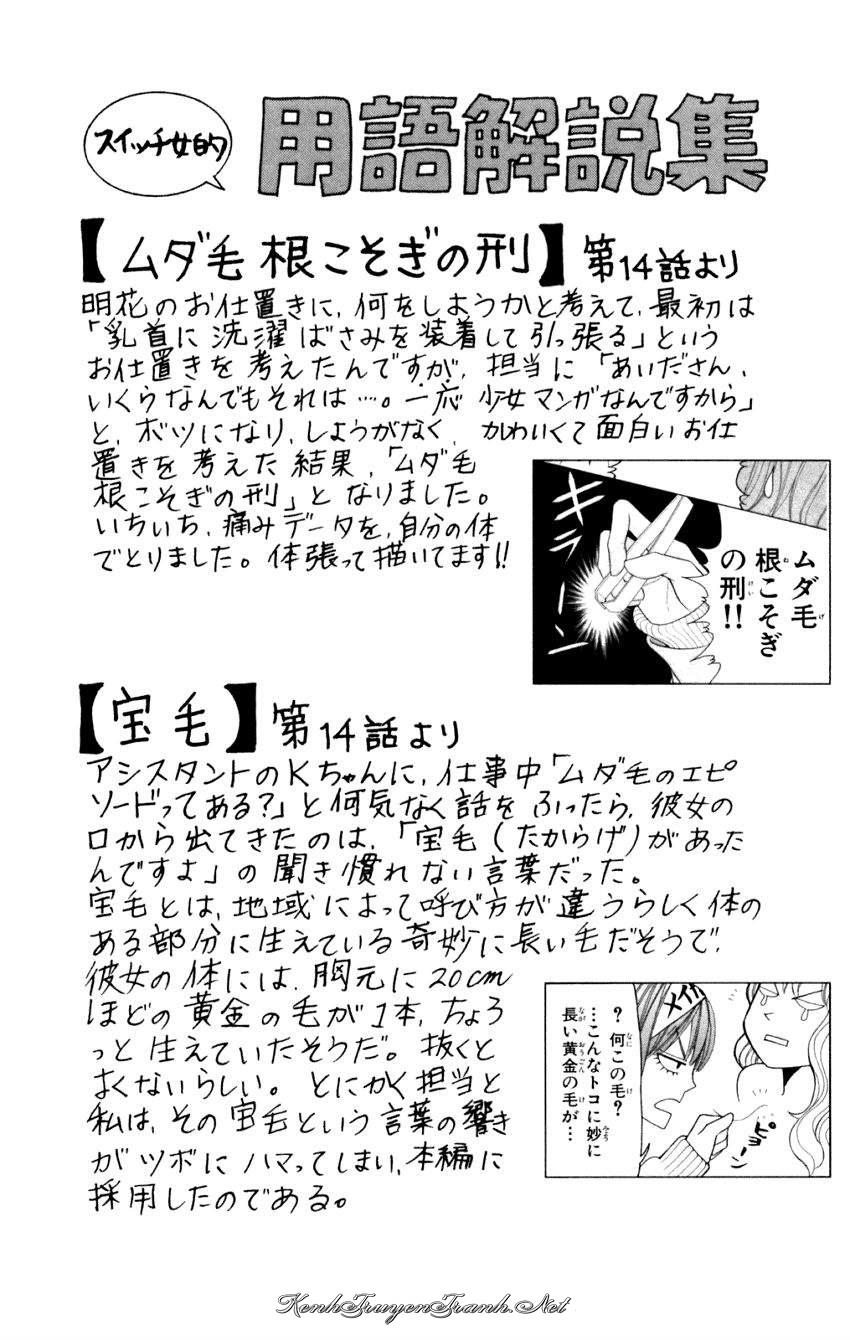 スイッチ女的
用語解説集
【ムダ毛根こそぎの刑】第14話より
明花のお仕置きに、何をしようかと考えて、最初は
「乳首に洗濯ばさみを装着して引っ張る」という
お仕置きを考えたんですが、担当に「あいださん、
いくらなんでもそれは…。一応、少女マンガなんですから」
と、ボツになり、しょうがなく、かわいくて面白いお仕
置きを考えた結果、「ムダ毛
根こそぎの刑」となりました。
いちいち、痛みデータを、自分の体
でとりました。体張って描いてます!!
ムダ毛
根こそぎ
の刑!!
【宝毛】第14話より
アシスタントのKちゃんに、仕事中「ムダ毛のエピ
ソードってある?」と何気なく話をふったら、彼女の
口から出てきたのは、「宝毛(たからげ)があった
んですよ」の聞き慣れない言葉だった。
宝毛とは、地域によって呼び方が違うらしく体の
ある部分に生えている奇妙に長い毛だそうで、
彼女の体には、胸元に20cm
ほどの黄金の毛が1本、ちょろ
っと生えていたそうだ。抜くと
よくないらしい。とにかく担当と
私は、その宝毛という言葉の響き
がツボにハマってしまい、本編に
採用したのである。
メイク
?何この毛?
…こんなトコに妙に
長い黄金の毛が…
ピヨーン
KenhTruyenTranh.Net